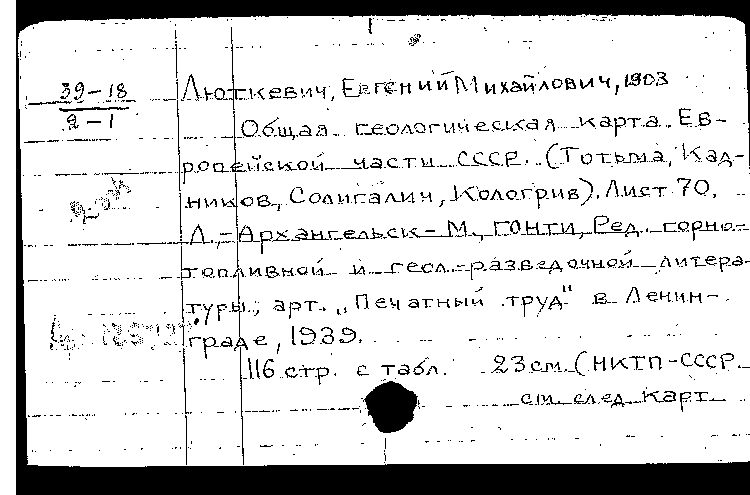 39-18
2-1
Люткевич, Евгений Михайлович, 1903
Общая геологическая карта Ев-
ропейской части СССР. (Тотьма, Кад-
ников, Солигалич, Кологрив). Лист 70.
Л.-Архангельск-М., ГОНТИ, Ред. горно-
топливной и геол.-разведочной литера-
туры; арт. „Печатный труд" в Ленин-
граде, 1939.
116 стр. с табл. 23 см. (НКТП-СССР.
см. след. карт.